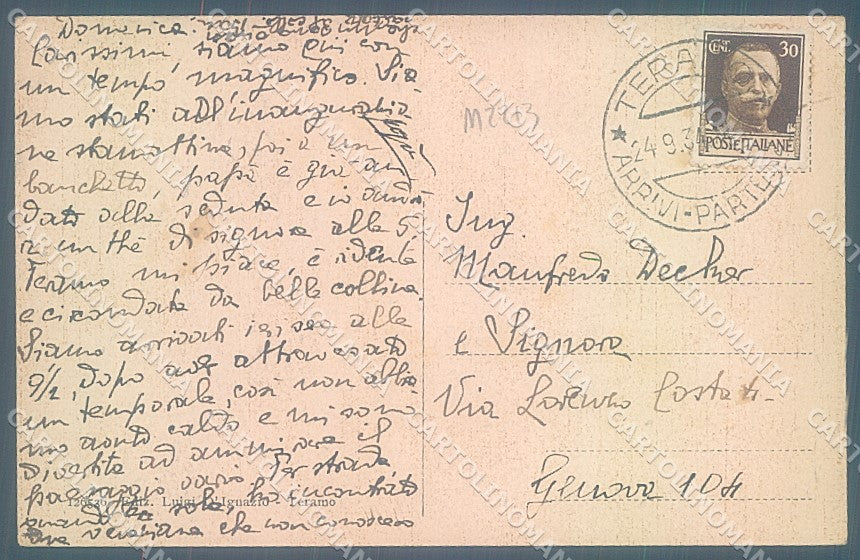 Domenica.
Carissimi, siamo qui con
un tempo magnifico. Sia
mo stati all'inaugurazio
ne stamattina, poi a un
banchetto, papà è già an
dato alla seduta e io andrò
a un thè di signore alle 5.
Teramo mi piace, è ridente
e circondata da belle colline.
Siamo arrivati ieri sera alle
9½, dopo aver attraversato
un temporale, così non abbia
mo avuto caldo e mi sono
divertita ad ammirare il
paesaggio vario. Per strada
quando sola, ho incontrato
due veneziane che non conoscevo
126526 Ediz. Luigi D'Ignazio - Teramo
M2113
CENT. 30
POSTE ITALIANE
TERAMO
24 9.34
ARRIVI-PARTENZE
Ing.
Manfredo Decker
e Signora
Via Lorenzo Costa 1-
Genova 104
CARTOLINOMANIA